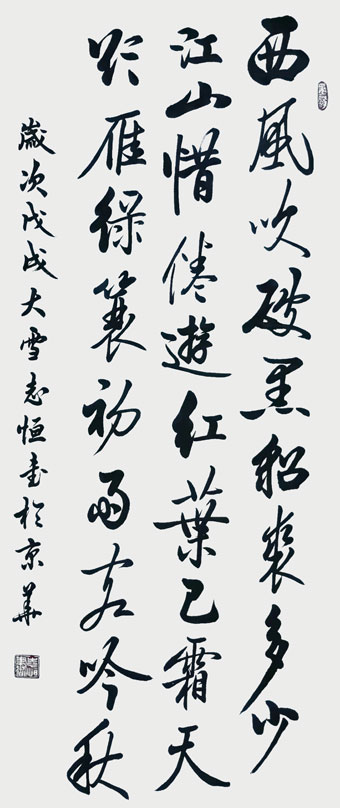 西風吹破黑貂裘多少
江山惜倦遊紅葉已霜天
雁緑蓑初雨客吟秋
歲次戊戌大雪志恒書於京華